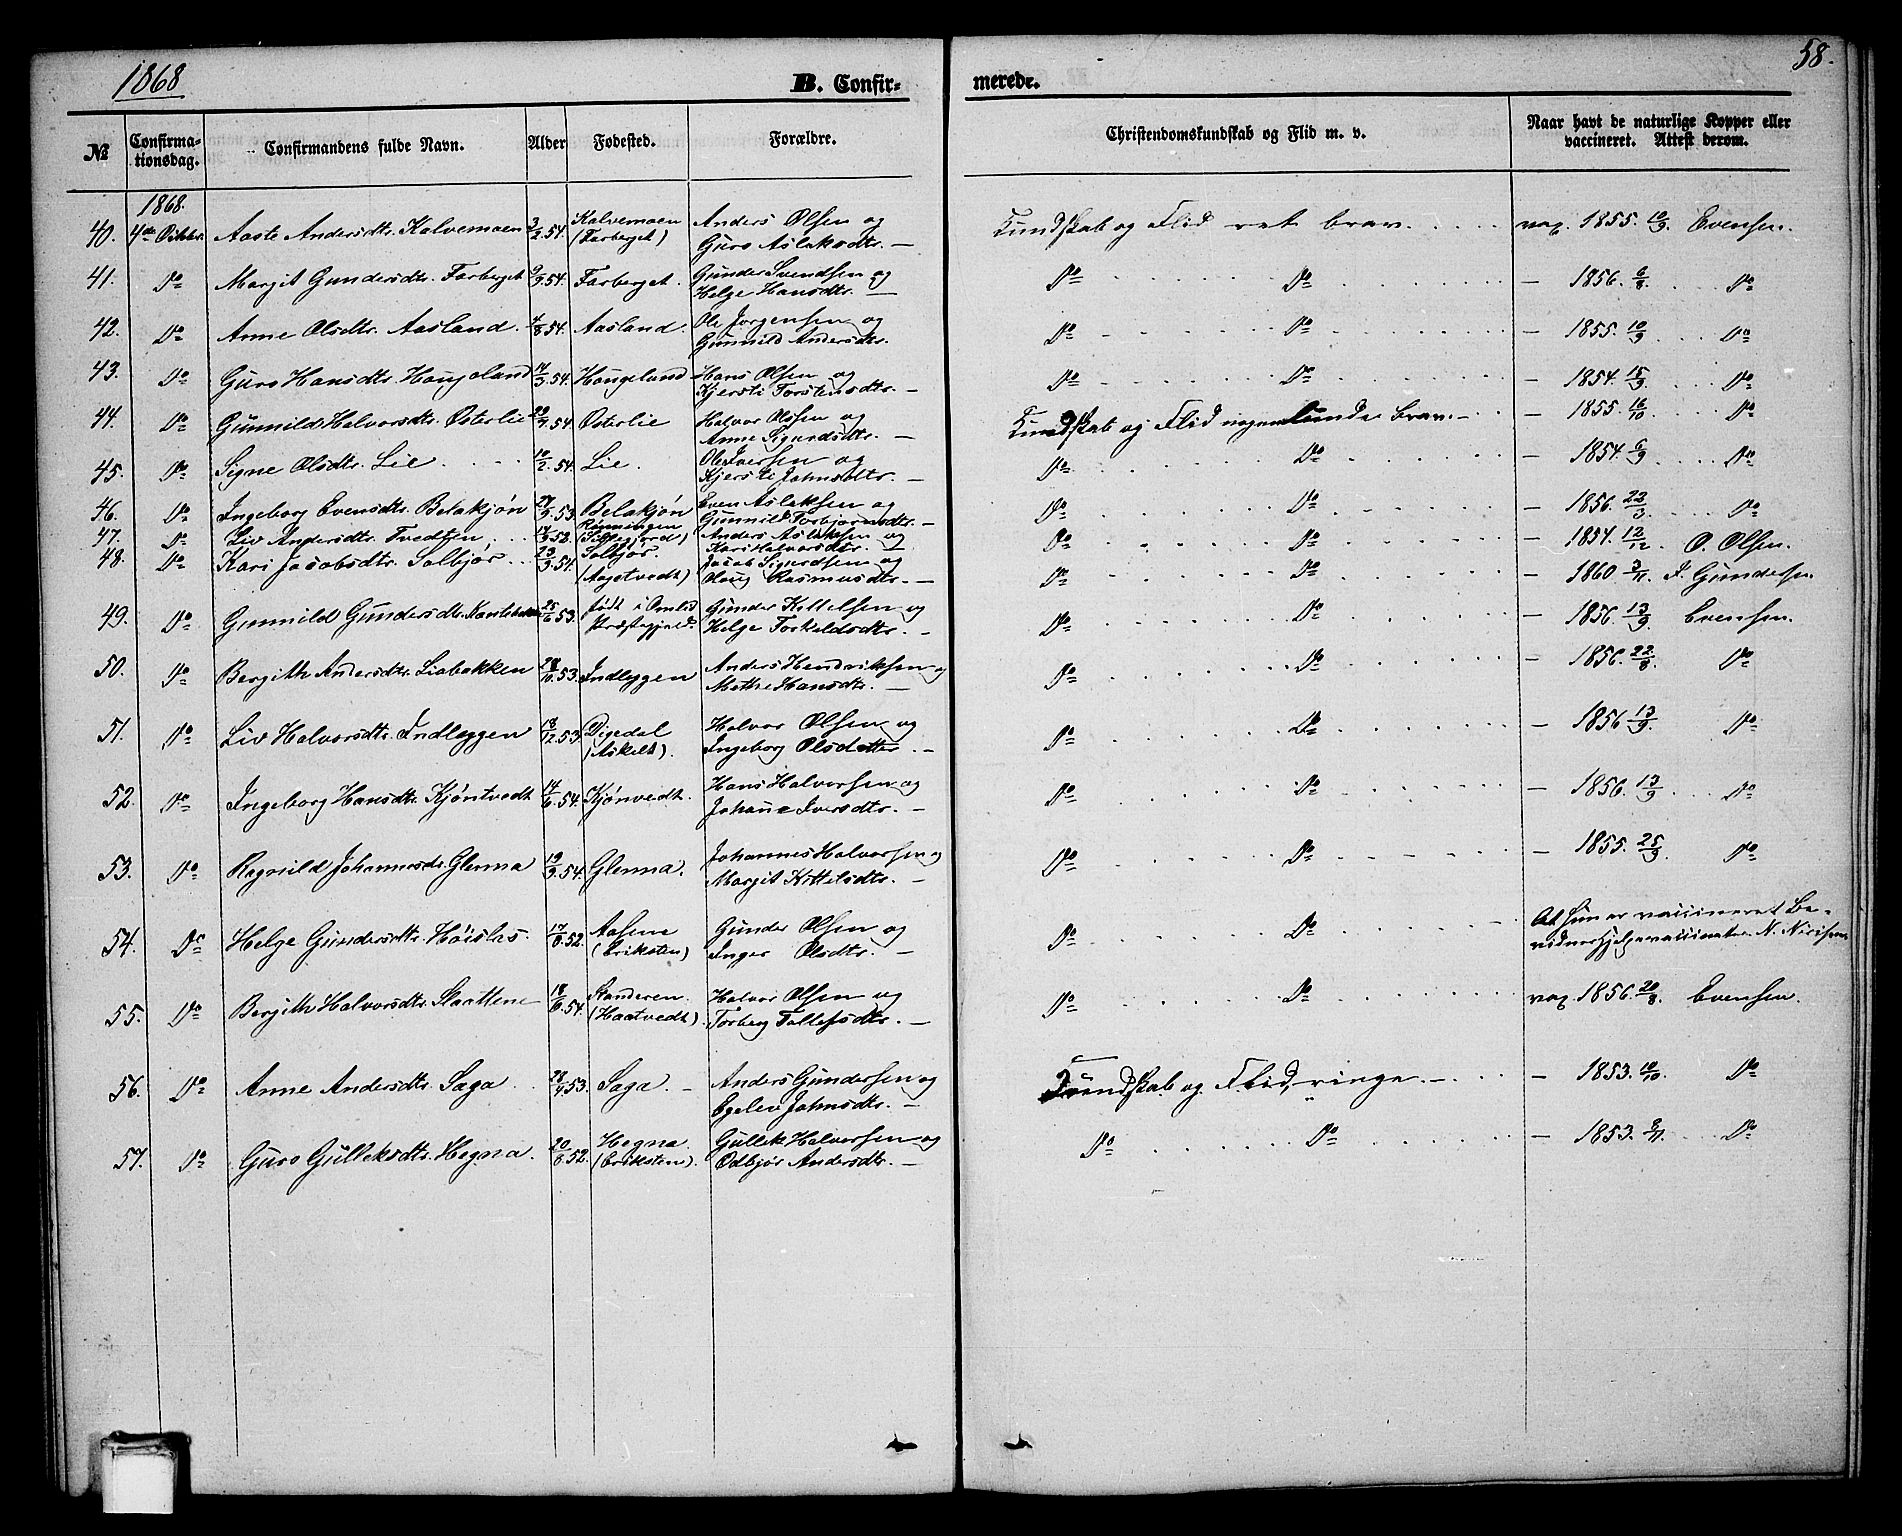 1868
B. Confirmerede.
58.
№ Confirmationsdag. Confirmandens fulde Navn. Alder Fødested. Forældre. Christendomskundskab og Flid m. v. Naar havt de naturlige Kopper eller vaccineret. Attest derom.
1868.
40. 4de Octbr. Aaste Andersdtr. Kalvemoen 3/2.54. Kalvemoen (Farberget) Anders Olsen og Guro Aslaksdtr. — Kundskab og Flid ret brav. vax. 1855. 10/9 Evensen.
41. Do Margit Gundersdtr. Farberget 9/3.54. Farberget. Gunder Svendsen og Helge Hansdtr. — Do Do — 1856. 6/8 Do
42. Do Anne Olsdtr. Aasland. 4/8.54. Aasland. Ole Jørgensen og Gunnild Andersdtr. Do Do — 1855. 10/9 Do
43. Do Guro Hansdtr. Haugeland 14/3.54. Haugeland Hans Olsen og Kjersti Torstensdtr. — Do Do — 1854. 15/9 Do
44. Do Gunnild Halvorsdtr. Østerlie 20/7.54 Østerlie Halvor Olsen og Anne Sigurdsdtr. — Kundskab og Flid nogenlunde brav. — 1855. 16/10 Do
45. Do Signe Olsdtr. Lie 10/2.54. Lie. Ole Iversen og Kjersti Johnsdtr. — Do Do — 1854. 6/9 Do
46. Do Ingeborg Evensdtr. Belakjøn 27/3.53. Belakjøn Even Aslaksen og Gunnild Torbjørnsdtr. — Do Do — 1856. 23/3 Do
47. Do Liv Andersdtr. Tvedten Rønningen (Sillegjord) Anders Aslaksen og Kari Halvorsdtr. — Do Do — 1854. 12/12 O. Olsen.
48. Do Kari Jacobsdtr. Solbjør 23/3.54. Solbjør. (Aagetvedt) Jacob Sigurdsen og Olaug Rasmusdtr. — Do Do — 1860. 3/11 F. Gundersen
49. Do Gunnild Gundersdtr. 25/6.53. født i Omlid Præstegjeld. Gunder Kittelsen og Helge Torkeldsdtr. — Do Do — 1856. 13/9. Evensen.
50. Do Bergith Andersdtr. Liabakken 28/10.53. Indleggen Anders Hendriksen og Methe Hansdtr. — Do Do — 1856. 22/8. Do
51. Do Liv Halvorsdtr. Indleggen 18/12.53 Digedal (Askelt). Halvor Olsen og Ingeborg Olsdatter. — Do Do — 1856 13/9. Do
52. Do Ingeborg Hansdtr. Kjøntvedt 14/6.54. Kjønvedt. Hans Halvorsen og Johanne Iversdtr. — Do Do — 1856. 13/9 Do
53. Do Ragnild Johannesdtr. Glenna 19/3.54. Glenna. Johannes Halvorsen og Margit Kittelsdtr. — Do Do — 1855. 25/9. Do
54. Do Helge Gundersdtr. Høislas. 17/6.52. Aasene (Eriksten) Gunder Olsen og Inger Olsdtr. — Do Do — At hun er vaccineret Bevidner hjelpevaccinatør N. Nirisen
55. Do Bergith Halvorsdtr. Slaattene 18/6.54. Sanderen. (Haatvedt). Halvor Olsen og Torberg Tollefsdtr. — Do Do vax. 1856. 20/8. Evensen.
56. Do Anne Andersdtr. Saga 28/4.53. Saga. — Anders Gundersen og Egelev Johnsdtr. — Kundskab og Flid, ringe. — 1853. 10/10. Do
57. Do Guro Gulleksdtr. Hegna. 20/6.52. Hegna (Eriksten). Gullek Halvorsen og Odbjør Andersdtr. — Do Do — 1853. 8/11. Do